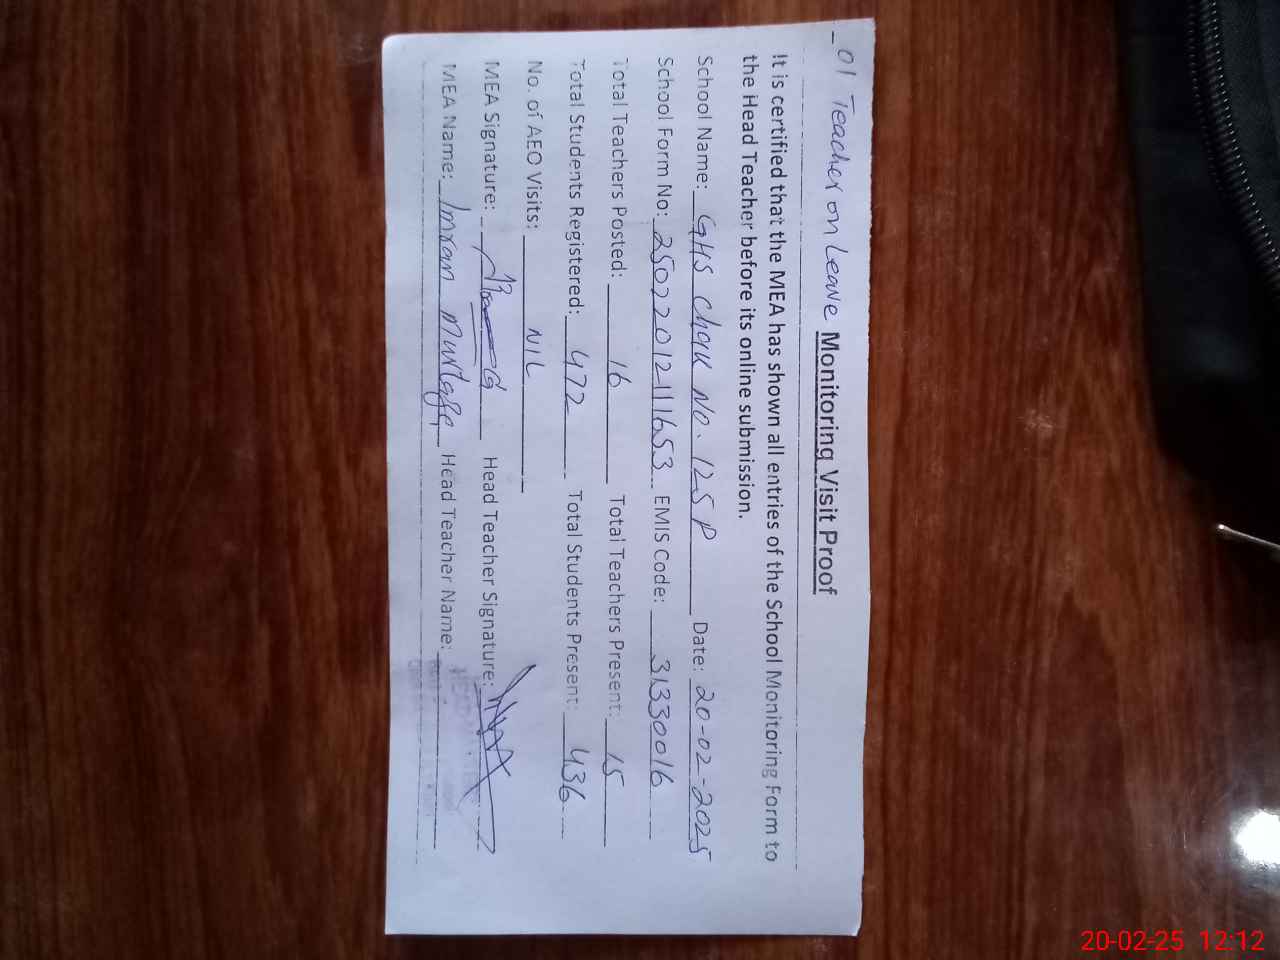 01 Teacher on Leave
Monitoring Visit Proof
It is certified that the MEA has shown all entries of the School Monitoring Form to
the Head Teacher before its online submission.
School Name: GHS Chak No. 125 P Date: 20-02-2025
School Form No: 25022012111653 EMIS Code: 31330016
Total Teachers Posted: 16 Total Teachers Present: 15
Total Students Registered: 472 Total Students Present: 436
No. of AEO Visits: NIL
MEA Signature: Head Teacher Signature:
MEA Name: Imran Murtaza Head Teacher Name:
20-02-25 12:12